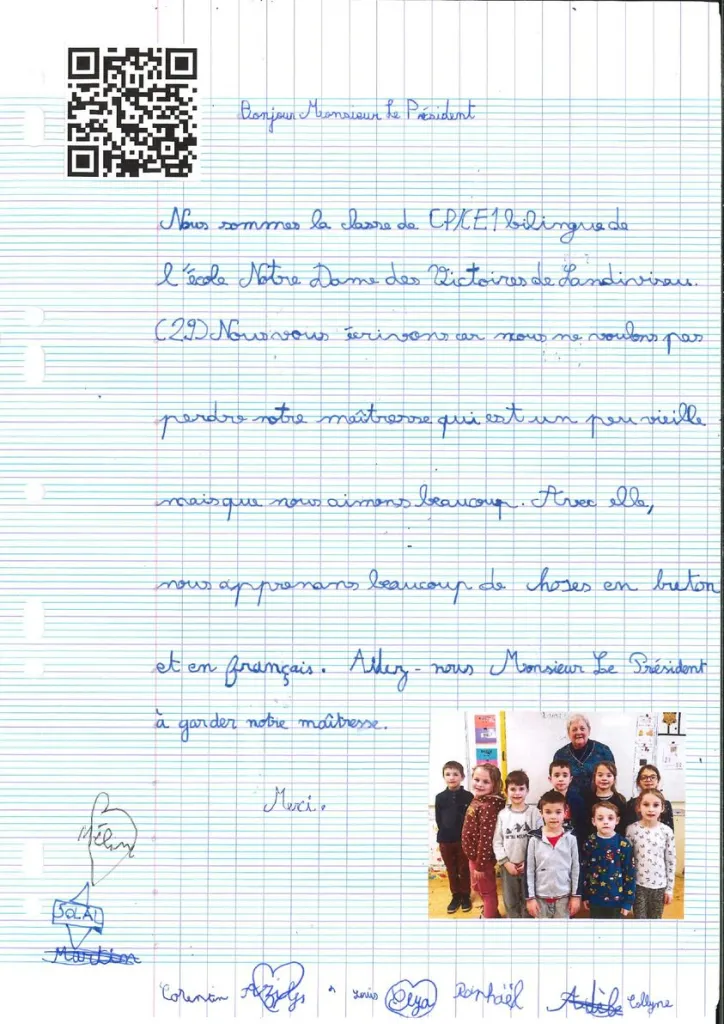 Bonjour Monsieur Le Président
Nous sommes la classe de CP/CE1 bilingue de
l'école Notre Dame des Victoires de Landivisau.
(29) Nous vous écrivons car nous ne voulons pas
perdre notre maîtresse qui est un peu vieille
mais que nous aimons beaucoup. Avec elle,
nous apprenons beaucoup de choses en breton
et en français. Aidez-nous Monsieur Le Président
à garder notre maîtresse.
Merci.
SOLAL
Martin
Corentin Raphaël Collyne